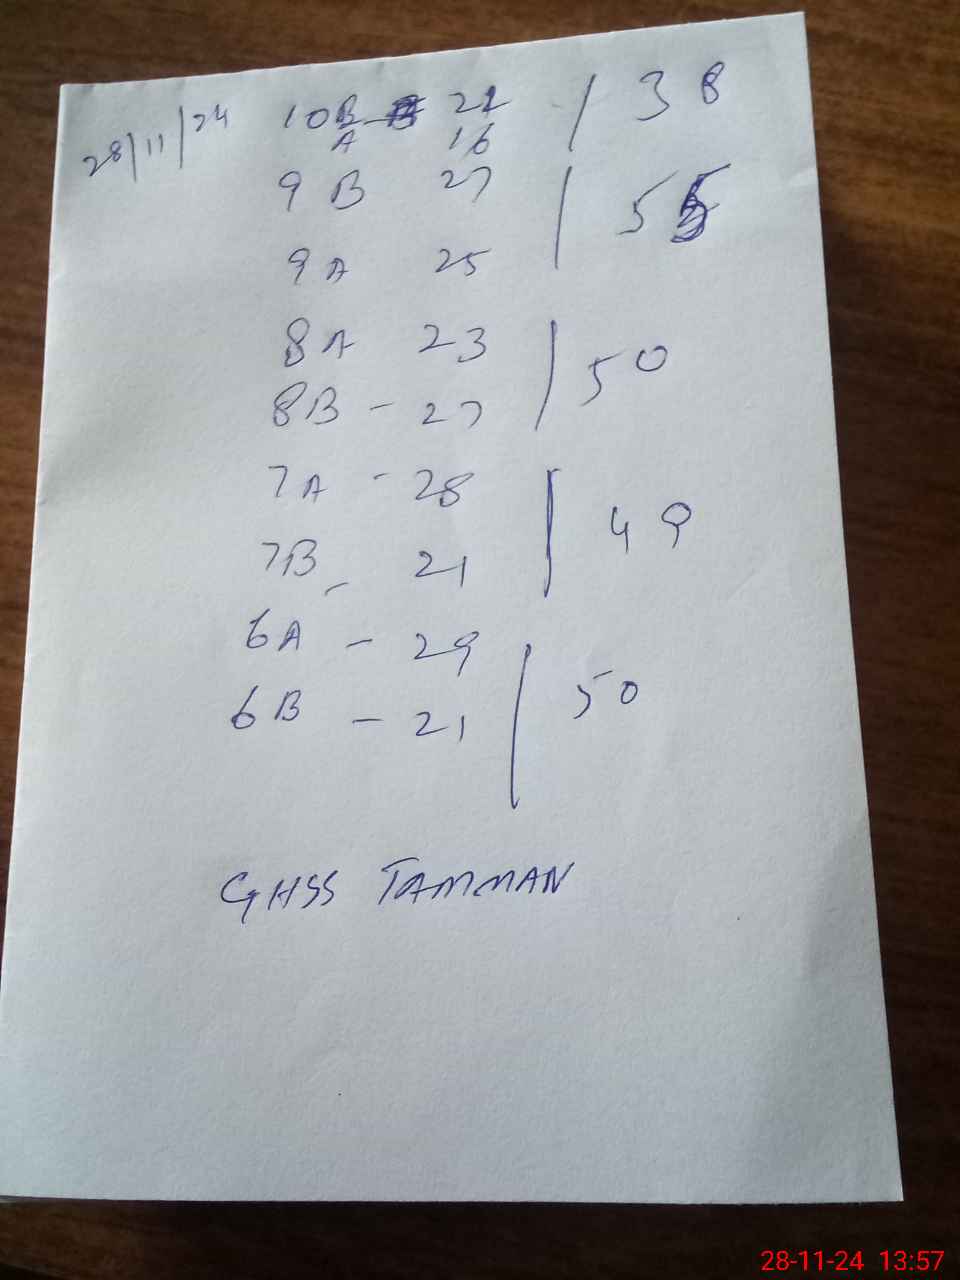 28/11/24 10B - 22 / 38
A 16
9 B 27 / 5
9 A 25
8 A 23 / 50
8B - 27
7A - 28 / 49
7B - 21
6A - 29 / 50
6 B - 21
GHSS TAMMAN
28-11-24 13:57